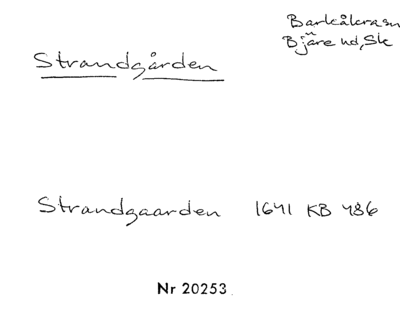 Barkåkra sn
Bjäre hd, Sk
Strandgården
Strandgaarden 1641 KB 486
Nr 20253